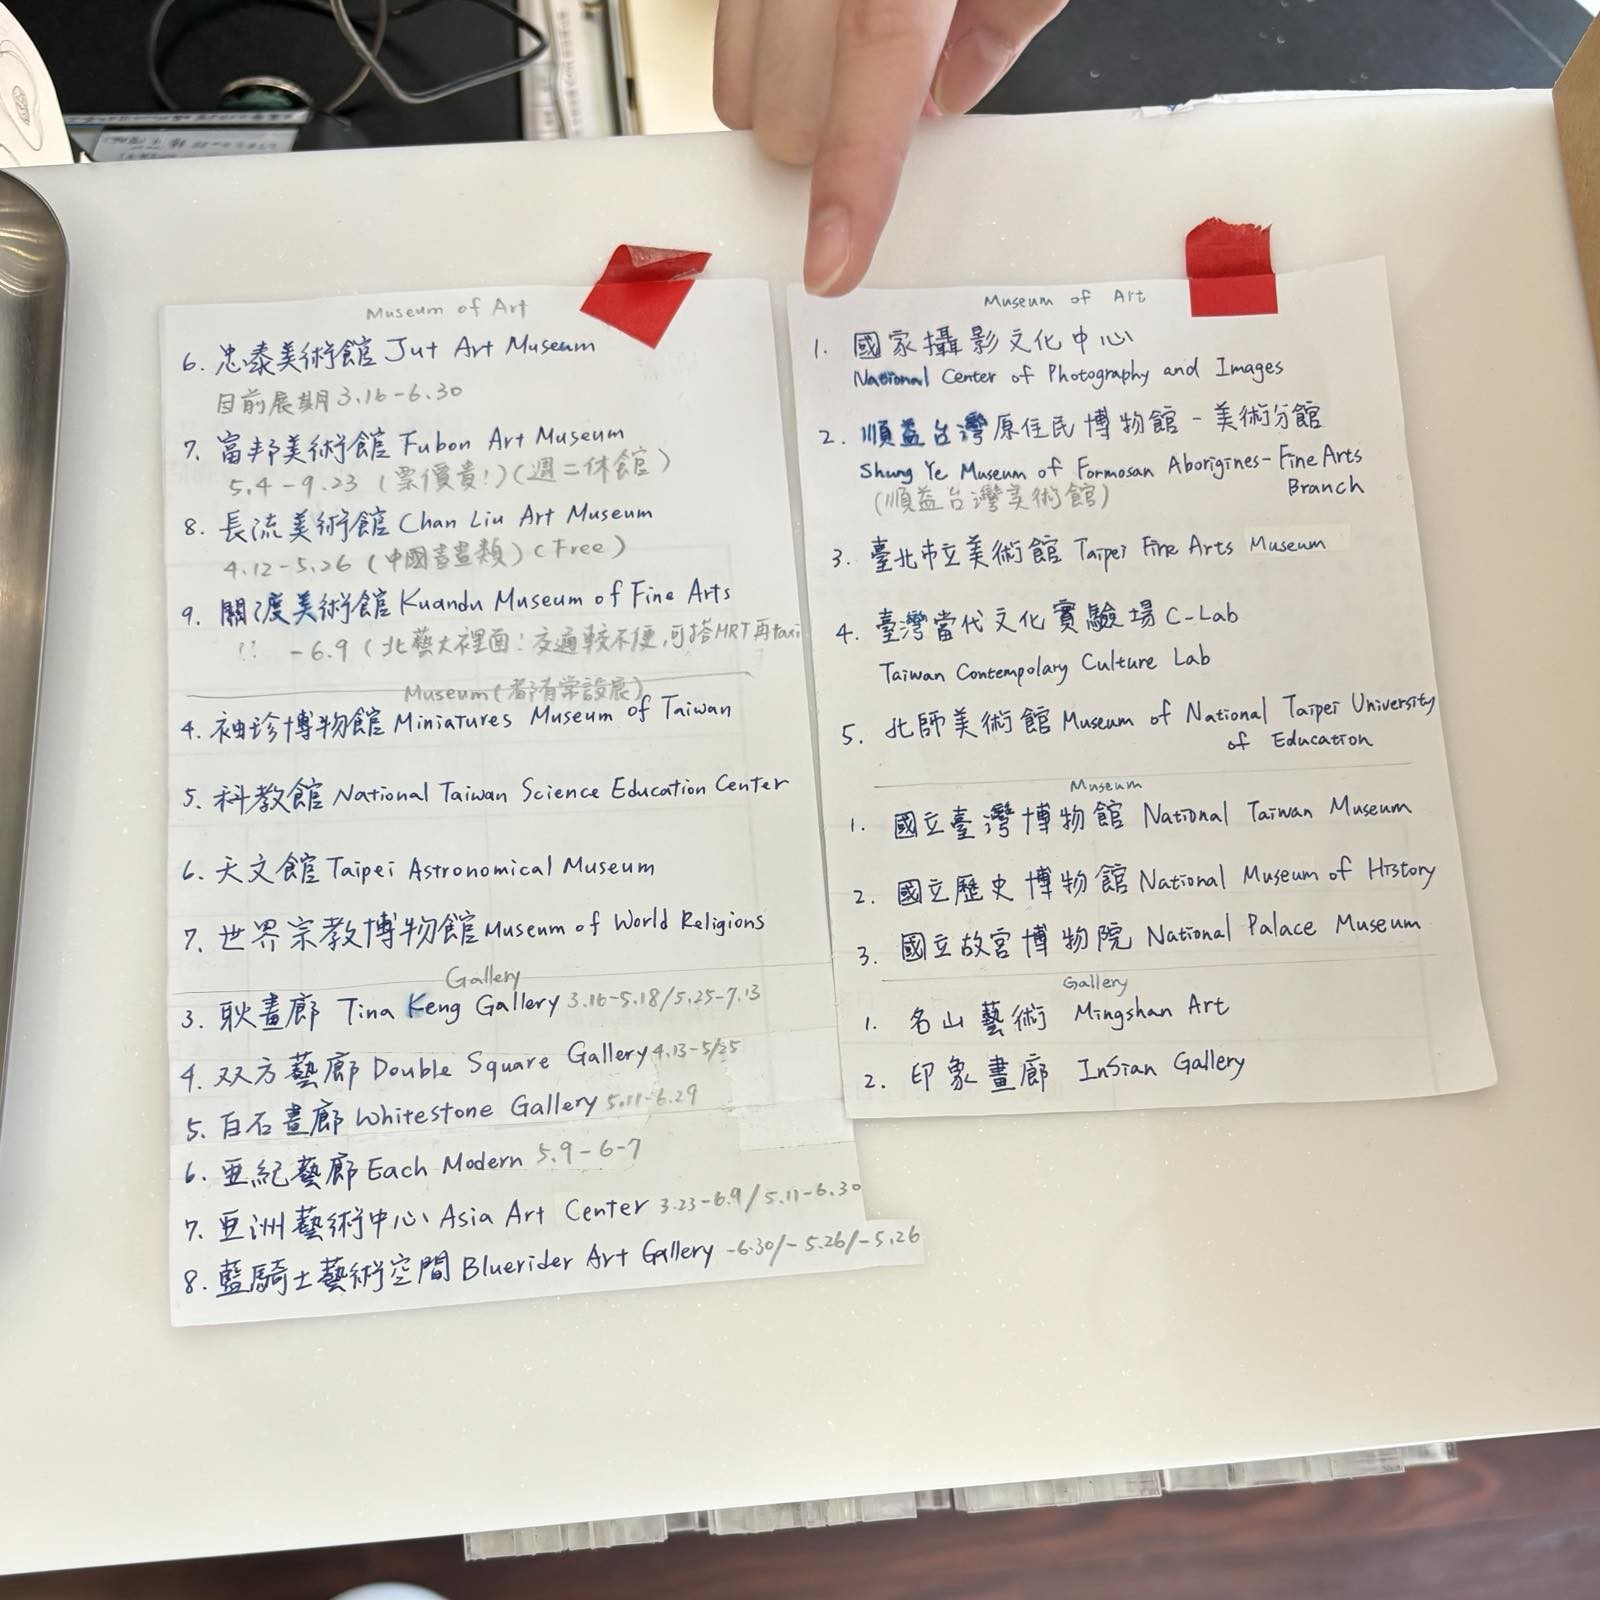 Museum of Art
6. 忠泰美術館 Jut Art Museum
目前展期 3.16-6.30
7. 富邦美術館 Fubon Art Museum
5.4-9.23 (票價貴!)(週二休館)
8. 長流美術館 Chan Liu Art Museum
4.12-5.26 (中國書畫類)(Free)
9. 關渡美術館 Kuandu Museum of Fine Arts
!! -6.9 (北藝大裡面! 交通較不便,可搭MRT再taxi
Museum (都有常設展)
4. 袖珍博物館 Miniatures Museum of Taiwan
5. 科教館 National Taiwan Science Education Center
6. 天文館 Taipei Astronomical Museum
7. 世界宗教博物館 Museum of World Religions
Gallery
3. 耿畫廊 Tina Keng Gallery 3.16-5.18/5.25-7.13
4. 双方藝廊 Double Square Gallery 4.13-5/25
5. 白石畫廊 Whitestone Gallery 5.11-6.29
6. 亜紀藝廊 Each Modern 5.9-6-7
7. 亜洲藝術中心 Asia Art Center 3.23-6.9/5.11-6.30
8. 藍騎士藝術空間 Bluerider Art Gallery -6.30/-5.26/-5.26
Museum of Art
1. 國家攝影文化中心
National Center of Photography and Images
2. 順益台灣原住民博物館-美術分館
Shung Ye Museum of Formosan Aborigines-Fine Arts
Branch
(順益台灣美術館)
3. 臺北市立美術館 Taipei Fine Arts Museum
4. 臺灣當代文化實驗場 C-Lab
Taiwan Contempolary Culture Lab
5. 北師美術館 Museum of National Taipei University
of Education
Museum
1. 國立臺灣博物館 National Taiwan Museum
2. 國立歷史博物館 National Museum of History
3. 國立故宮博物院 National Palace Museum
Gallery
1. 名山藝術 Mingshan Art
2. 印象畫廊 InSian Gallery